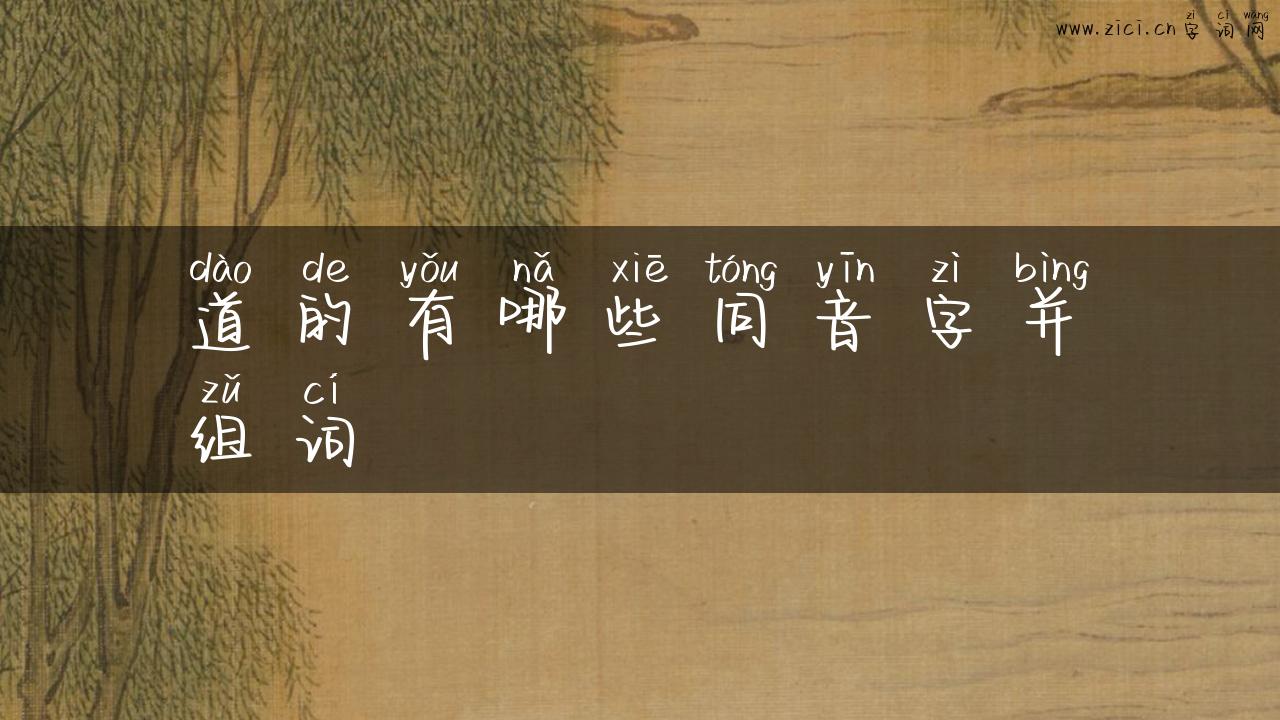 zì cí wǎng
www.zici.cn字词网
dào de yǒu nǎ xiē tóng yīn zì bìng
道的有哪些同音字并
zǔ cí
组词